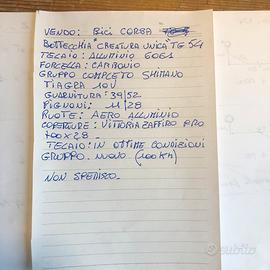 VENDO: BICI CORSA
BOTTECCHIA "CREATURA UNICA" TG 54
TELAIO: ALLUMINIO 6061
FORCELLA: CARBONIO
GRUPPO COMPLETO SHIMANO
TIAGRA 10V
GUARNITURA: 39/52
PIGNONI: 11/28
RUOTE: AERO ALLUMINIO
COPERTURE: VITTORIA ZAFFIRO PRO
700X28
TELAIO: IN OTTIME CONDIZIONI
GRUPPO: NUOVO (100KM)
NON SPEDISCO
subito